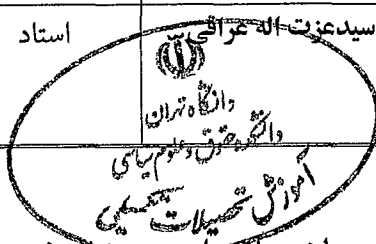 سیدعزت اله عراقی استاد
دانشگاه تهران
دانشکده حقوق و علوم سیاسی
آموزش تحصیلات تکمیلی